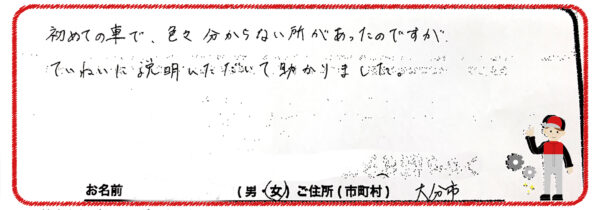 初めての車で、色々分からない所があったのですが
ていねいに説明いただいて助かりました。
お名前 (男・女) ご住所(市町村) 大分市